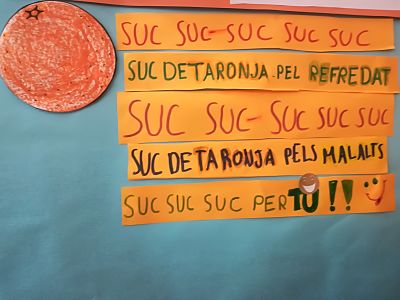 SUC SUC-SUC SUC SUC
SUC DE TARONJA PEL REFREDAT
SUC SUC-SUC SUC SUC
SUC DE TARONJA PELS MALALTS
SUC SUC SUC PER TU!!